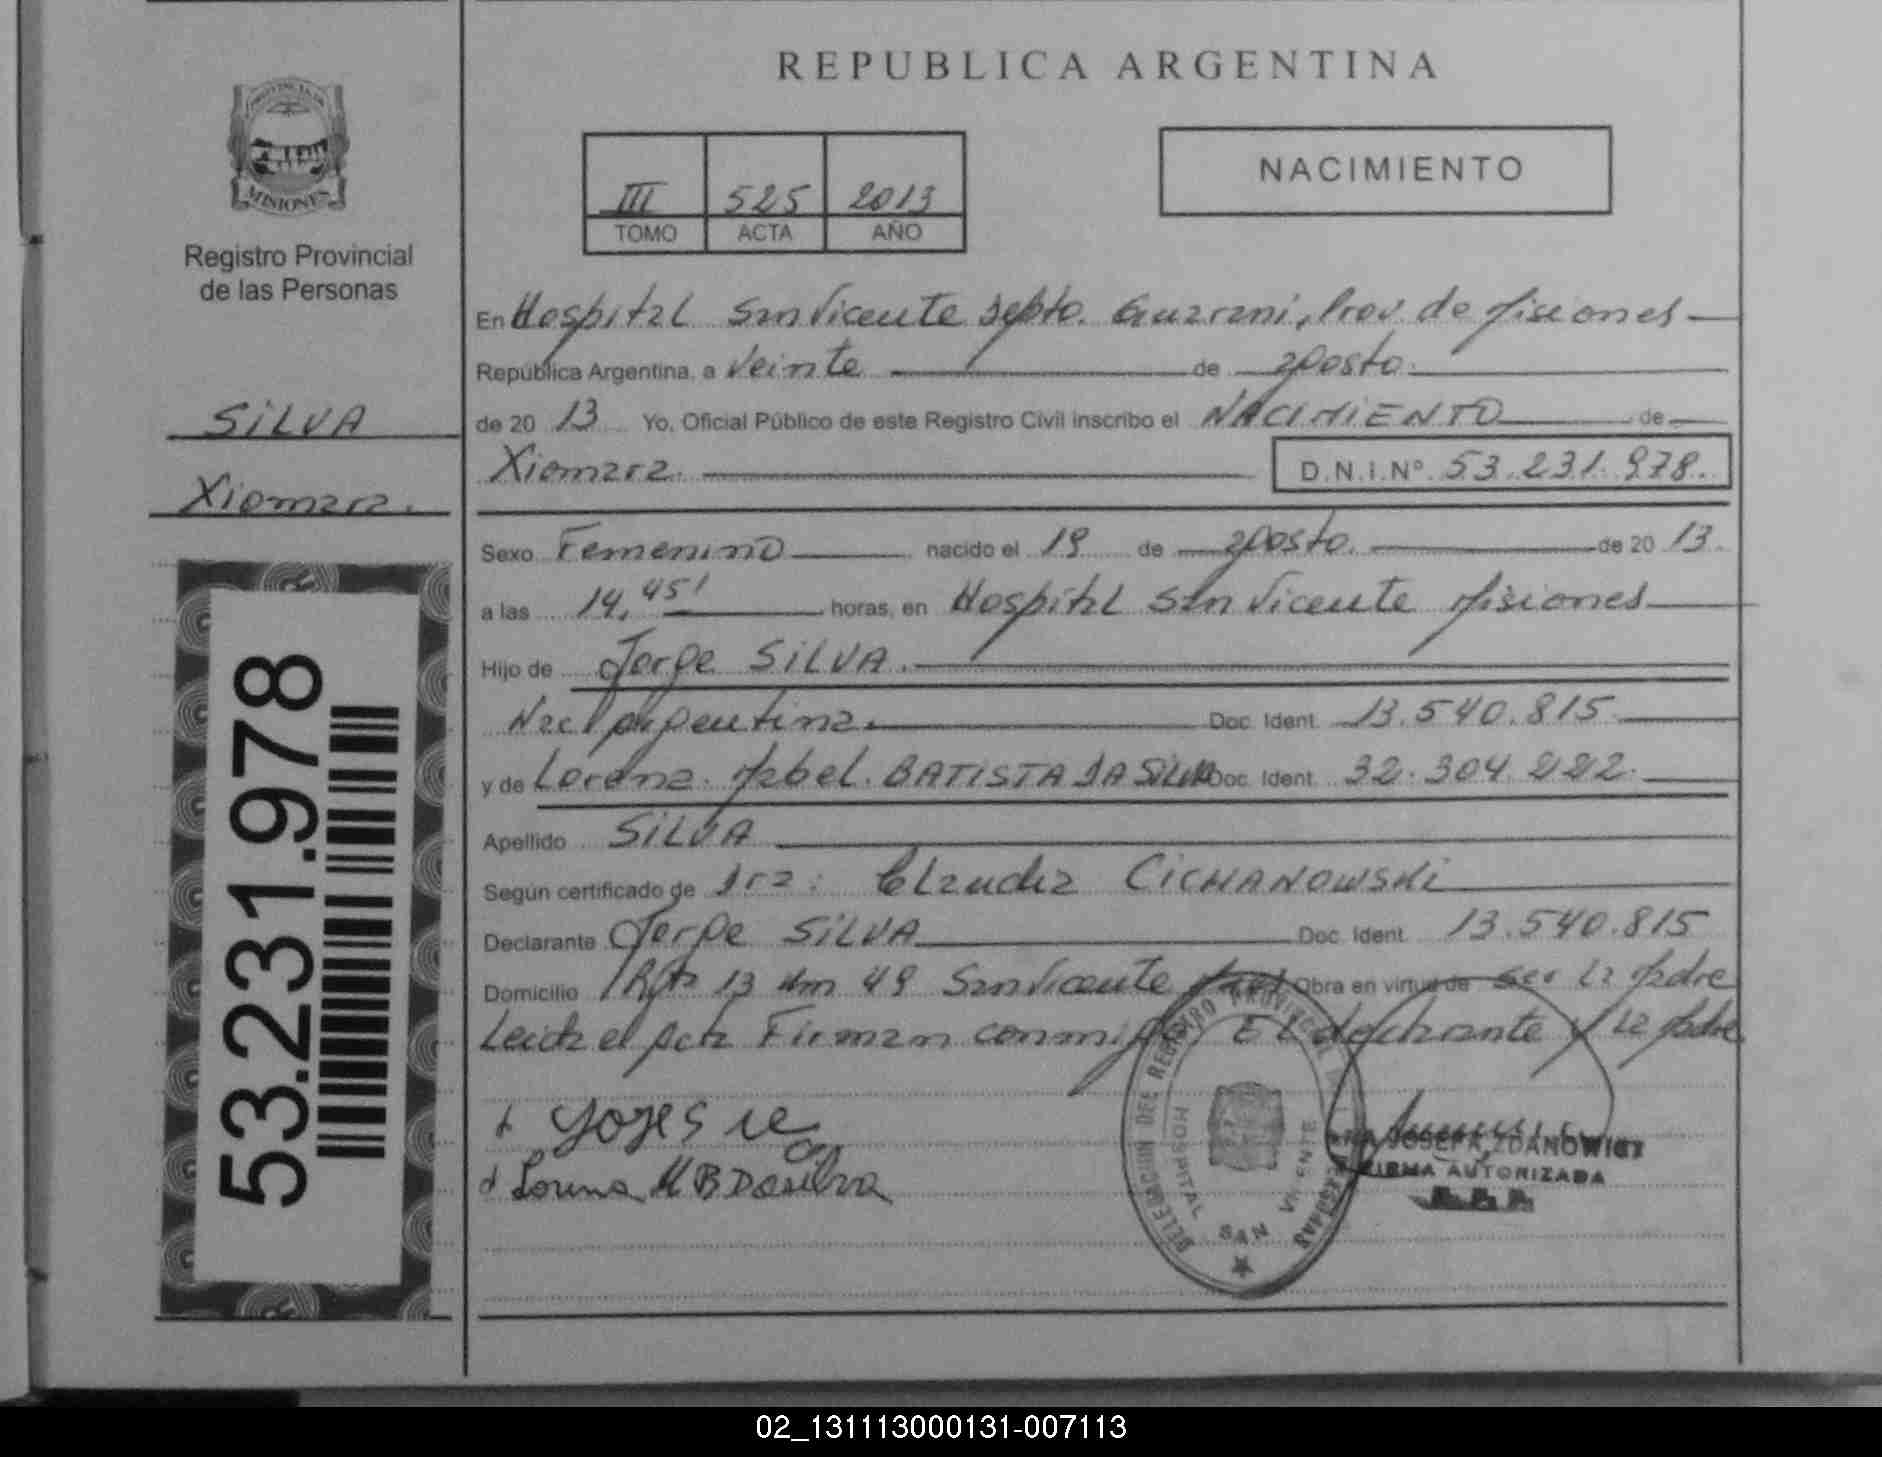 PROVINCIA DE
MISIONES
Registro Provincial
de las Personas
SILVA
Xiomara.
53.231.978
REPUBLICA ARGENTINA
III 525 2013
TOMO ACTA AÑO
NACIMIENTO
En Hospital San Vicente Depto. Guarani, Prov. de Misiones
República Argentina, a Veinte de agosto.
de 20 13 Yo, Oficial Público de este Registro Civil inscribo el NACIMIENTO de
Xiomara. D.N.I.Nº 53.231.978.
Sexo Femenino nacido el 19 de agosto. de 20 13.
a las 14,45' horas, en Hospital San Vicente Misiones
Hijo de Jorge SILVA.
Nac Argentina. Doc. Ident. 13.540.815
y de Lorena. Mabel. BATISTA DA SILVA Doc. Ident. 32.304.222.
Apellido SILVA
Según certificado de Dra: Claudia CICHANOWSKI
Declarante Jorge SILVA Doc. Ident. 13.540.815
Domicilio Ruta 13 Km 49 San Vicente Obra en virtud de ser La Madre
Leida el Acta Firman conmigo, El declarante y La Madre
Lorena M B Dasilva
DELEGACION DEL REGISTRO PROVINCIAL DE LAS PERSONAS
HOSPITAL SAN VICENTE
JOSEFA ZDANOWICZ
FIRMA AUTORIZADA
R.P.P.
02_131113000131-007113